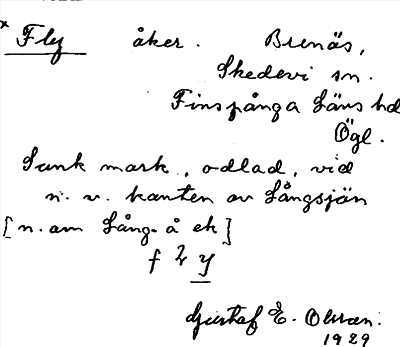 x Fly åker. Brenäs,
Skedevi sn.
Finspånga Läns hd
Ögl.
Sank mark, odlad, vid
n. v. kanten av Långsjön
[n. om Lång-å ek]
f y
Gustaf E. Olsson.
1929